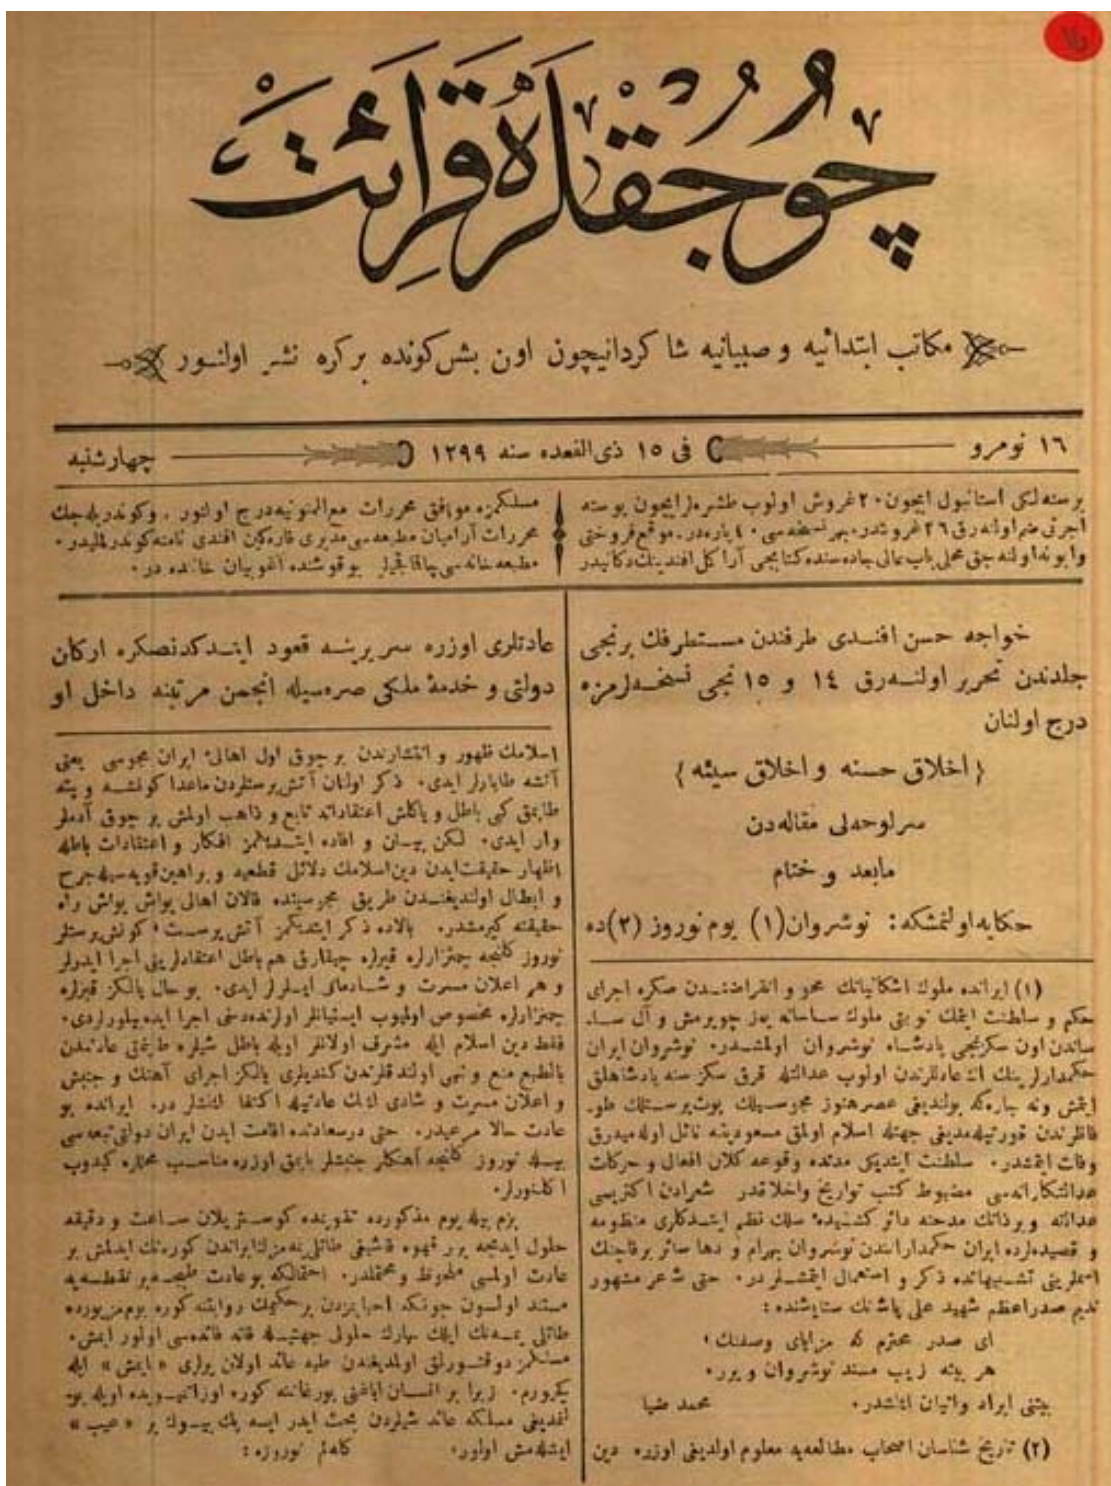 چوجقلره قرائت
مكاتب ابتدائيه و صبيانيه شاكردانيچون اون بش كونده بر كره نشر اولنور
١٦ نومرو
فى ١٥ ذى القعده سنه ١٢٩٩
چهارشنبه
برسنه لكى استانبول ايچون ٢٠ غروش اولوب طشره لر ايچون پوسته
اجرتى ضم اولنه رق ٢٦ غروشدر. بهر نسخه سى ٤٠ پاره در. موقع فروختى
و ابونه اولنه جق محلى باب عالى جاده سنده كتابجى آراكل افندينك دكانيدر
مسلكمزه موافق محررات مع الممنونيه درج اولنور. و كوندريله جك
محررات آراميان مطبعه سى مديرى افندى نامنه كوندرلميدر.
مطبعه خانه سى چاقماقجيلر يوقوشنده آغوبيان خاننده در.
خواجه حسن افندى طرفندن مستطرفك برنجى
جلدندن تحرير اولنه رق ١٤ و ١٥ نجى نسخه لرمزه
درج اولنان
{اخلاق حسنه و اخلاق سيئه}
سرلوحه لى مقاله دن
مابعد و ختام
حكايه اولنمشكه: نوشروان(١) يوم نوروز (٢)ده
(١) ايرانده ملوك اشكانيانك محو و انقراضندن صكره اجراى
حكم و سلطنت ايتمك نوبتى ملوك ساسانه يوز چويرمش و آل سا-
ساندن اون سكزنجى پادشاه نوشروان اولمشدر. نوشروان ايران
حكمدارلرينك اك عادللرندن اولوب عدالتله قرق سكز سنه پادشاهلق
ايتمش ونه چاره كه بولنديغى عصر هنوز مجوسيلك بوت پرستلك طو-
فانلرندن قورتيله مديغى جهتله اسلام اولمق مسعوديتنه نائل اوله ميه رق
وفات ايتمشدر. سلطنت ايتديكى مدتده وقوعه كلان افعال و حركات
عدالتكارانه سى مضبوط كتب تواريخ و اخلاقدر شعرادن اكثريسى
عدالته و بر ذاتك مدحنه دائر كشيده سلك نظم ايتدكلرى منظومه
و قصيده لرده ايران حكمدارانندن نوشروان بهرام و دها سائر بر قاچنك
اسملرينى تشبيهاتده ذكر و استعمال ايتمشلردر. حتى شعر مشهور
نديم صدراعظم شهيد على پاشانك ستايشنده:
اى صدر محترم كه مزاياى وصفنك،
هر بيته زيب مسند نوشروان ويرر.
بيتنى ايراد و اتيان ايتمشدر. محمد ضيا
(٢) تاريخ شناسان اصحاب مطالعه يه معلوم اولديغى اوزره دين
عادتلرى اوزره سريرينه قعود ايتدكدنصكره اركان
دولتى و خدمهٔ ملكى صره سيله انجمن مرتبنه داخل او
اسلامك ظهور و انتشارندن بر چوق اول اهالئ ايران مجوسى يعنى
آتشه طاپارلر ايدى. ذكر اولنان آتش پرستلردن ماعدا كونشه و پته
طاپمق كبى باطل و ياكلش اعتقاداته تابع و ذاهب اولمش بر چوق آدملر
وار ايدى. لكن بيان و افاده ايتديكمز افكار و اعتقادات باطله
اظهار حقيقت ايدن دين اسلامك دلائل قطعيه و براهين قويه سيله جرح
و ابطال اولنديغندن طريق مجوسيتده قالان اهالى يواش يواش راه
حقيقته كيرمشدر. بالاده ذكر ايتديكمز آتش پرست، كونش پرستلر
نوروز كلنجه چمنزارلره قيرلره چيقارق هم باطل اعتقادلرينى اجرا ايدرلر
و هم اعلان مسرت و شادمانى ايلرلر ايدى. بو حال يالكز قيرلره
چمنزارلره مخصوص اولميوب ايستيانلر اولرنده دخى اجرا ايده بيلورلردى.
فقط دين اسلام ايله مشرف اولانلر اويله باطل شيلره طاپمق عادتندن
بالطبع منع و نهى اولندقلرندن كنديلرى يالكز اجراى آهنك و جنبش
و اعلان مسرت و شادى ايتمك عادتيله اكتفا ايتمشلردر. ايرانده بو
عادت حالا مرعيدر. حتى درسعادتده اقامت ايدن ايران دولتى تبعه سى
بيله نوروز كلنجه آهنكلر جنبشلر ياپمق اوزره مناسب محللره كيدوب
اكلنورلر.
بزم بيله يوم مذكورده تقويمده كوستريلان ساعت و دقيقه
حلول ايدنجه برر قهوه قاشيغى طاتلى يه مز ايراندن كوره نك ايدلمش بر
عادت اولمسى ملحوظ و محتملدر. احتمالكه بو عادت طبجه بر نقطه يه
مستند اولسون چونكه احبامزدن بر حكيمك روايتنه كوره يوم مزبورده
طاتلى يمه نك ايلك بهارك حلولى جهتيله فائده سى اولور ايمش.
مسلكمز دوقتورلق اولمديغندن طبه عائد اولان يرلرى «ايمش» ايله
كچيورم. زيرا بر انسان اياغنى يورغاننه كوره اوزاتميوبده اويله بو-
لنمديغى مسلكه عائد شيلردن بحث ايدر ايسه پك بيوك بر «عيب»
ايشله مش اولور. كله لم نوروزه: